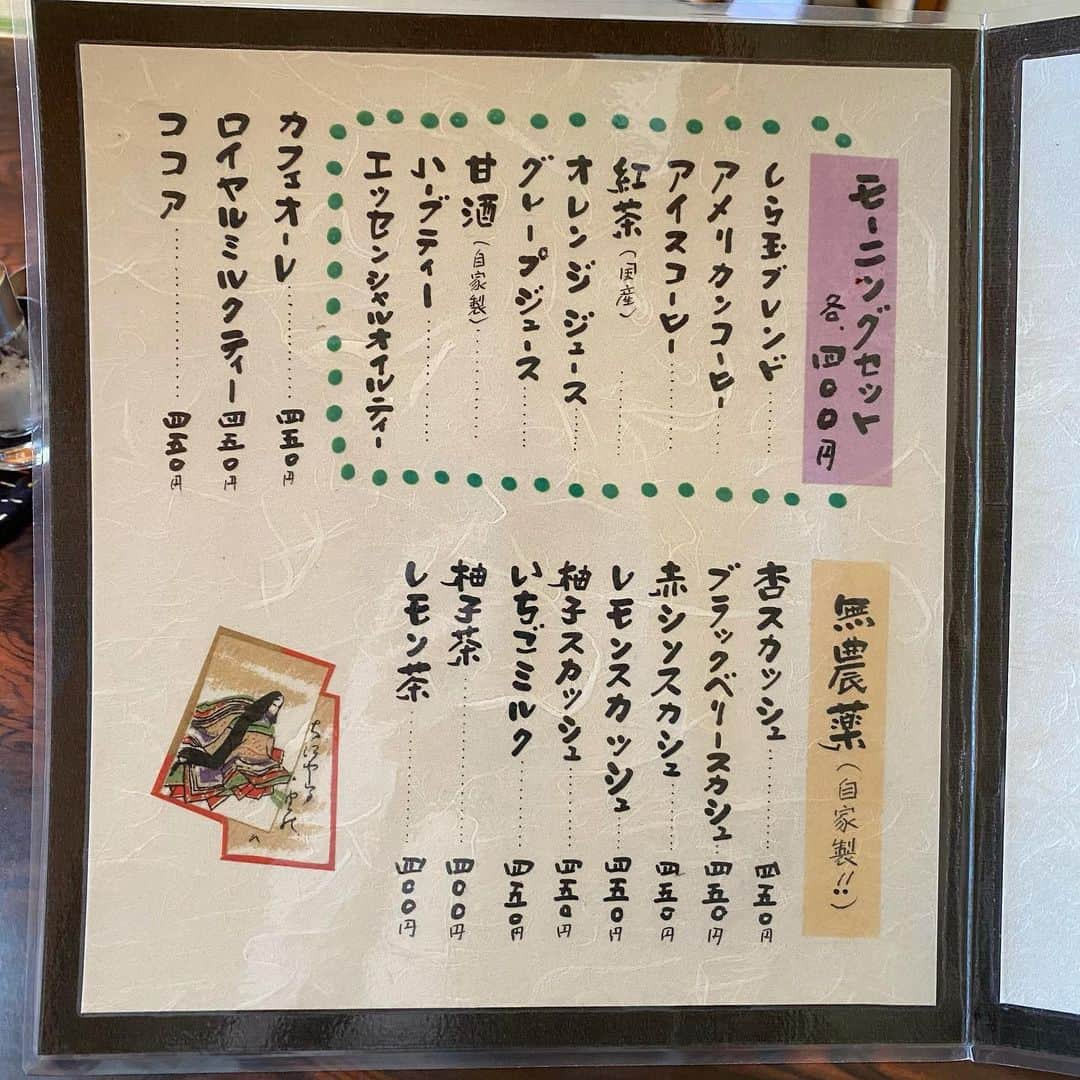 モーニングセット
各、四〇〇円
しら玉ブレンド
アメリカンコーヒー
アイスコーヒー
紅茶(国産)
オレンジジュース
グレープジュース
甘酒(自家製)
ハーブティー
エッセンシャルオイルティー
カフェオーレ 四五〇円
ロイヤルミルクティー 四五〇円
ココア 四五〇円
無農薬(自家製!!)
杏スカッシュ 四五〇円
ブラックベリースカシュ 四五〇円
赤シソスカシュ 四五〇円
レモンスカッシュ 四五〇円
柚子スカッシュ 四五〇円
いちごミルク 四五〇円
柚子茶 四〇〇円
レモン茶 四〇〇円